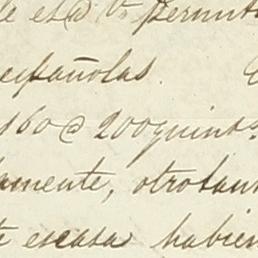 le está Vd. permit
españolas.
160 @ 200 quints.
amente, otro tan
te escasa habien